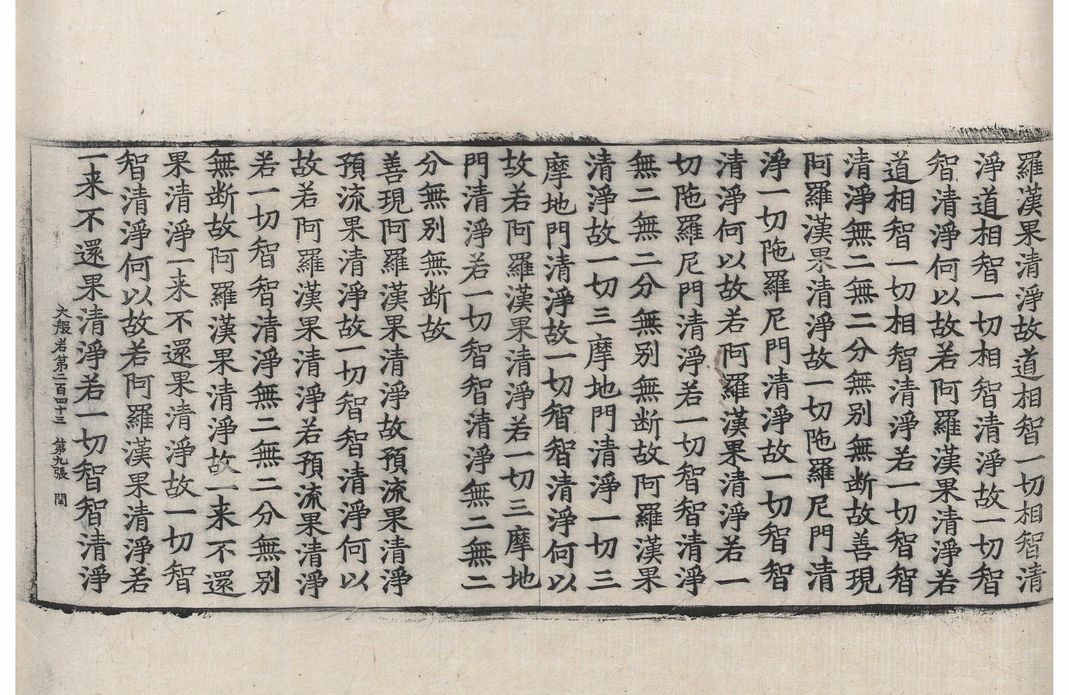 羅漢果清淨故道相智一切相智清
淨道相智一切相智清淨故一切智
智清淨何以故若阿羅漢果清淨若
道相智一切相智清淨若一切智智
清淨無二無二分無別無斷故善現
阿羅漢果清淨故一切陁羅尼門清
淨一切陁羅尼門清淨故一切智智
清淨何以故若阿羅漢果清淨若一
切陁羅尼門清淨若一切智智清淨
無二無二分無别無断故阿羅漢果
清淨故一切三摩地門清淨一切三
摩地門清淨故一切智智清淨何以
故若阿羅漢果清淨若一切三摩地
門清淨若一切智智清淨無二無二
分無别無断故
善現阿羅漢果清淨故預流果清淨
預流果清淨故一切智智清淨何以
故若阿羅漢果清淨若預流果清淨
若一切智智清淨無二無二分無别
無断故阿羅漢果清淨故一来不還
果清淨一来不還果清淨故一切智
智清淨何以故若阿羅漢果清淨若
一来不還果清淨若一切智智清淨
大般若第二百四十三 第九張 閏